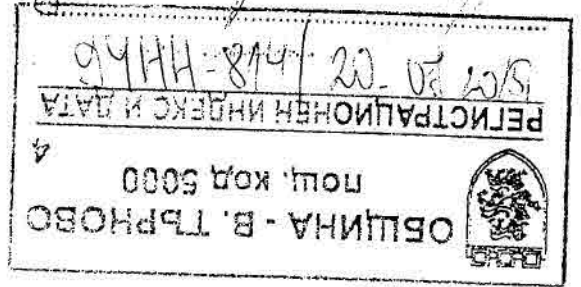 ОБЩИНА - В. ТЪРНОВО
пощ. код 5000
РЕГИСТРАЦИОНЕН ИНДЕКС И ДАТА
94НН-814/20-07 2015